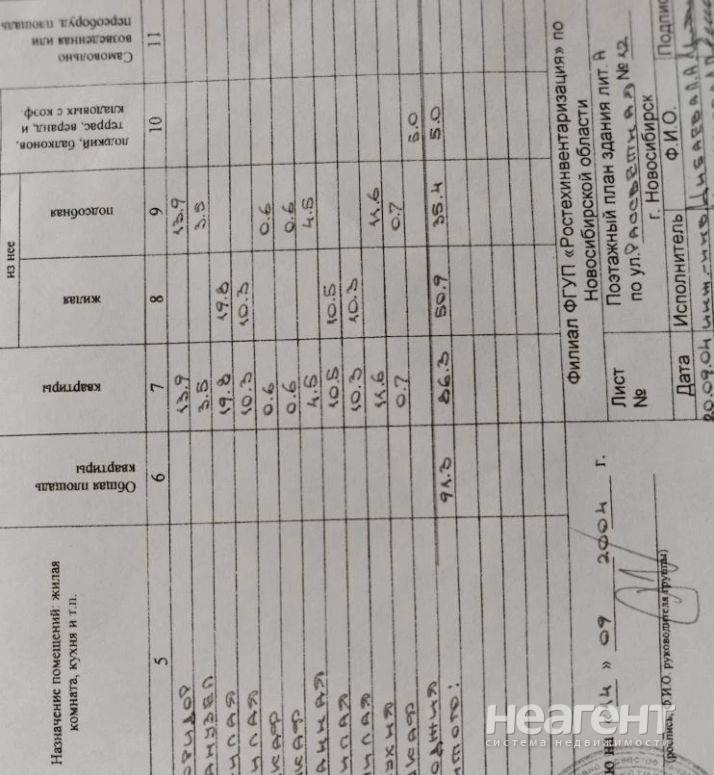 Назначение помещений: жилая
комната, кухня и т.п.
Общая площадь
квартиры
квартиры
из нее
жилая
подсобная
лоджий, балконов,
террас, веранд, и
кладовых с коэф
Самовольно
возведенная или
переоборуд. площадь
5 6 7 8 9 10 11
ОРИДОР 13.9 13.9
АНУЗЕЛ 3.5 3.5
ИЛАЯ 19.8 19.8
ИЛАЯ 10.3 10.3
КАФ 0.6 0.6
КАФ 0.6 0.6
АННАЯ 4.5 4.5
ИЛАЯ 10.5 10.5
ИЛАЯ 10.3 10.3
УХНЯ 11.6 11.6
КАФ 0.7 0.7
ОДЖИЯ 5.0
ИТОГО: 91.3 86.3 50.9 35.4 5.0
Филиал ФГУП «Ростехинвентаризация» по
Новосибирской области
Лист
№
Поэтажный план здания лит. А
по ул. Рассветная № 12
г. Новосибирск
Дата Исполнитель Ф.И.О. Подпис
20.09.04
ю на » 09 2004 г.
(подпись, Ф.И.О. руководителя группы)
неагент
система недвижимости